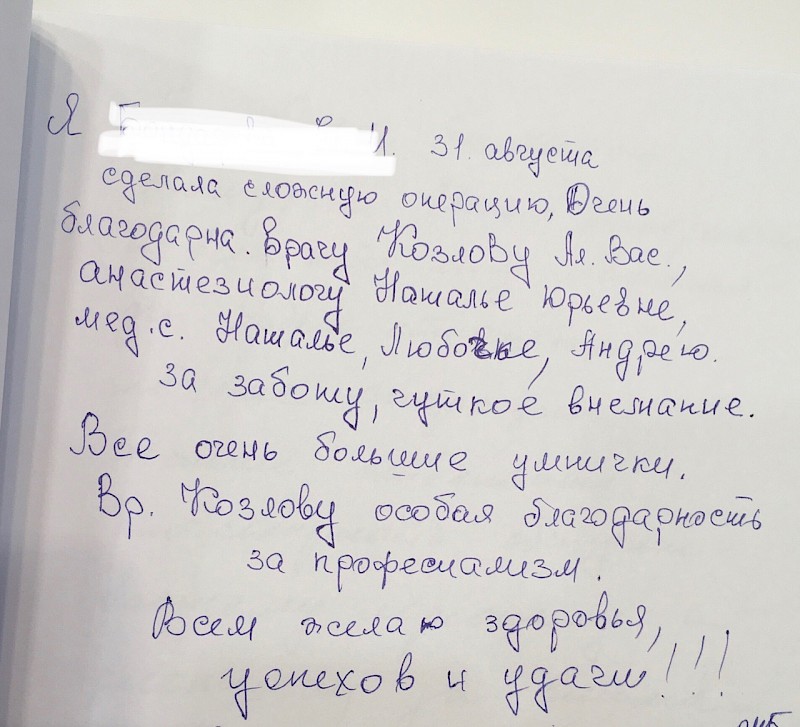 Я 31. августа
сделала сложную операцию, Очень
благодарна. Врачу Козлову Ал. Вас.,
анастезиологу Наталье Юрьевне,
мед.с. Наталье, Любочке, Андрею.
за заботу, чуткое внемание.
Все очень большие умнички.
Вр. Козлову особая благодарность
за професиализм.
Всем желаю здоровья,
успехов и удачи!!!